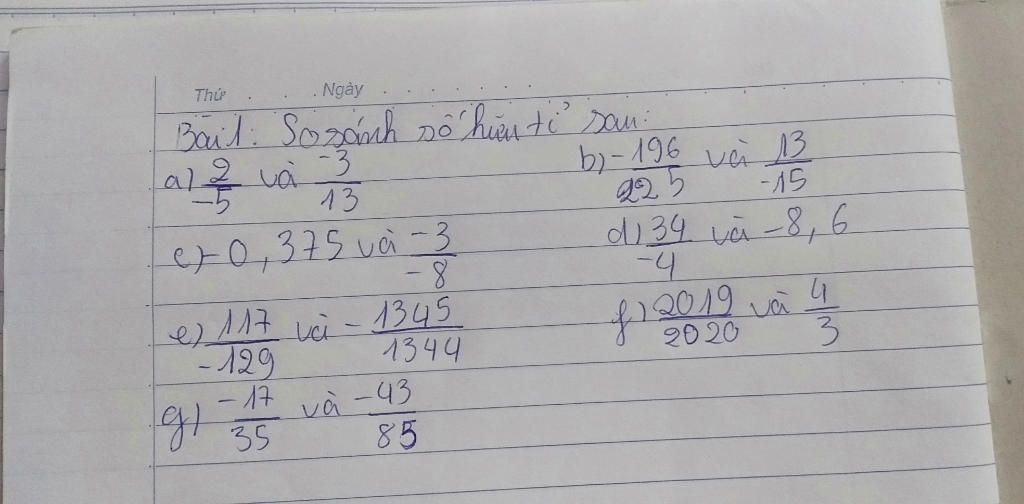 Thứ . . . Ngày . . . . . . .
Bài 1: So sánh số hữu tỉ sau:
a) 2/-5 và -3/13 b) -196/225 và 13/-15
c) -0,375 và -3/-8 d) 34/-4 và -8,6
e) 117/-129 và -1345/1344 f) 2019/2020 và 4/3
g) -17/35 và -43/85